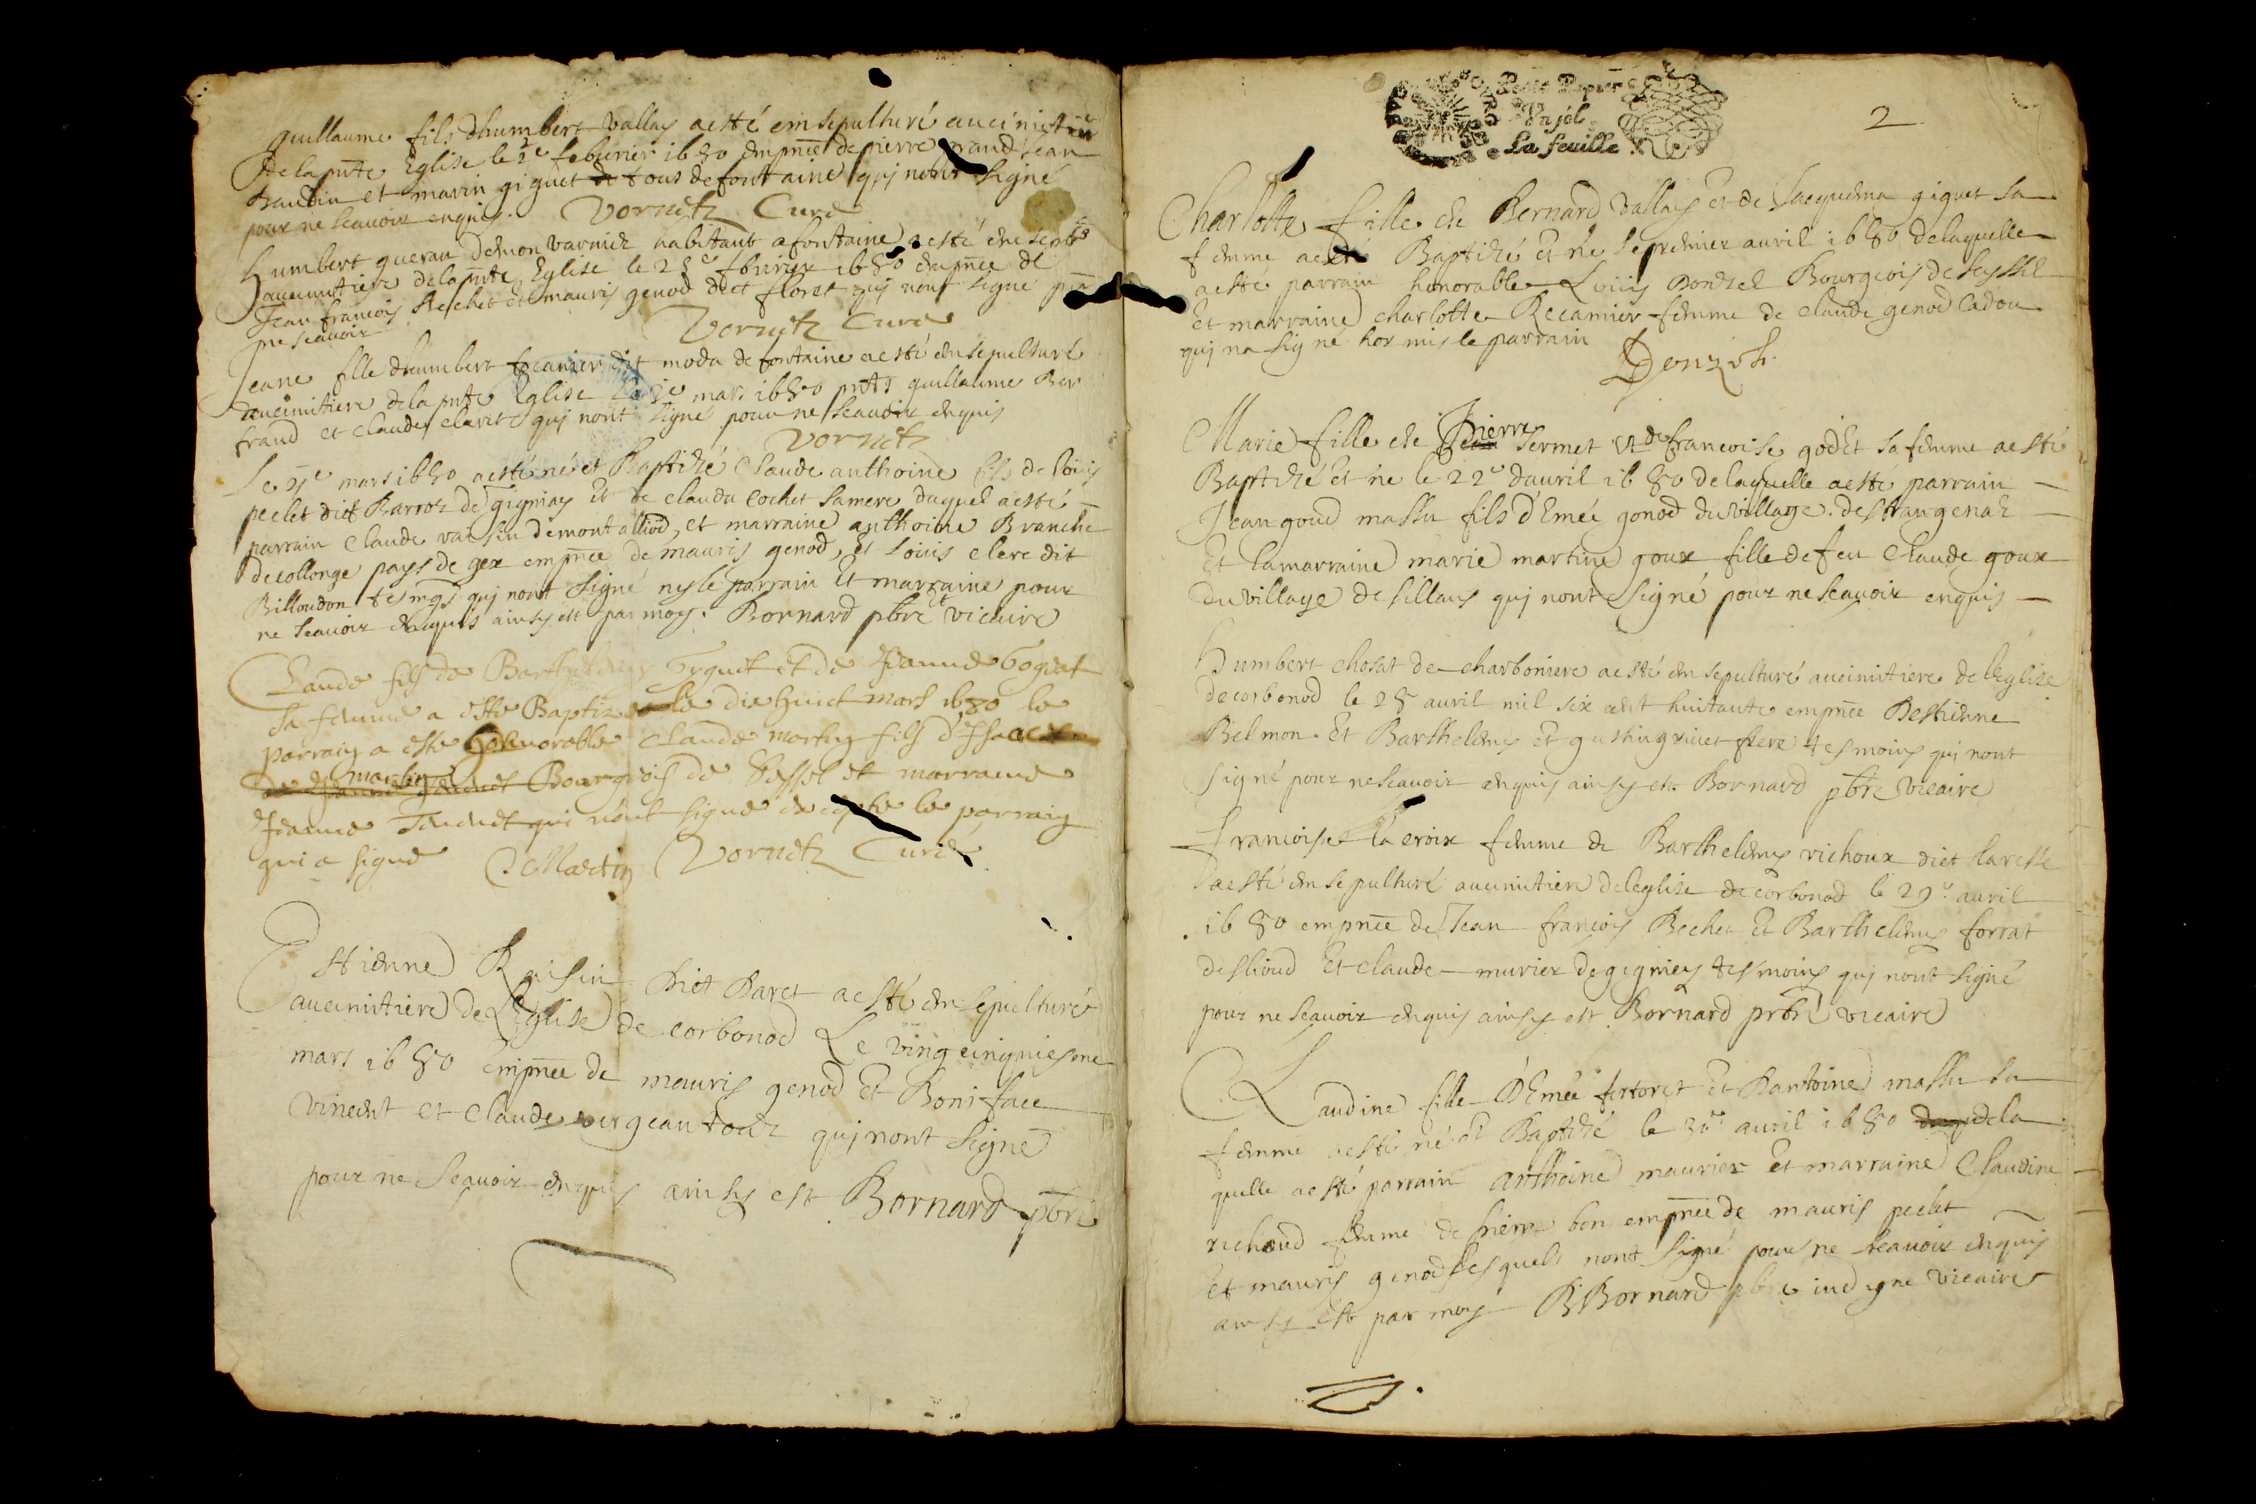 guillaume fils dhumbert vallay aesté ensepulturé au cimetiere
de la pnte Eglise le 2e febvrier 1680 empnce de pierre Jean
Baudin et marin giguet de fontaine qui nont signé
pour ne scavoir enquis. Vornetz Curé
humbert habitant a fontaine aesté
au cimitiere dela pnte Eglise le 28e fbvrier 1680 empnce de
Jean francois Rechet et mauris genod dict floret qui nont signé pr
ne scavoir Vornetz Curé
Jeane fille dhumbert dit moda de fontaine aesté ensepulturé
au cimitiere dela pnte Eglise mars 1680 pnts guillaume Ber
fraud et claude clerc qui nont signé pour ne scavoir enquis
Vornetz
Le mars 1680 aesté né et Baptizé Claude anthoine fils de louis
peclet dict Barroz de gigniay et de clauda cochet sa mere duquel aesté
parrain Claude de montalliod, et marraine anthoine Branche
de collonge pays de gex empnce de mauris genod, et louis clerc dit
Billoudon tesmgs qui nont signé ny le parrain et marraine pour
ne scavoir enquis ainsy est par moy. Bornard pbre vicaire
Claude fils de Barthelemy et de Jeanne
sa femme a este Baptizé le dix huict mars 1680 le
parrain a este honorable Claude martin fils d'Isaac
martin Bourgeois de Seyssel et marraine
Jeanne qui nont signé excepte le parrain
qui a signé C Martin Vornetz Curé
Estienne Raisin dict Baret aesté ensepulturé
au cimitiere de Leglise de corbonod Le ving cinquiesme
mars 1680 empnce de mauris genod et Boniface
vincent et claude qui nont signé
pour ne scavoir enquis ainsy est Bornard pbre
Petit Papier
Un sol
La feuille
2
Charlotte fille de Bernard vallay et de Jacquema giguet sa
femme aesté Baptizé et né le premier avril 1680 de laquelle
a esté parrain honorable Louis Donzel Bourgeois de seyssel
et marraine charlotte Recamier femme de claude genod Cadou
qui na signé hormis le parrain
Donzel.
Marie fille de Pierre Sermet et de francoise godet sa femme aesté
Baptizé et né le 22e davril 1680 de laquelle aesté parrain
Jean goud massu fils d'Emée gonod du village d'estrangenaz
et la marraine marie martine goux fille de feu Claude goux
du village de sillans qui nont signé pour ne scavoir enquis
Humbert chosat de charboniere aesté ensepulturé au cimitiere de leglize
de corbonod le 28 avril mil six cent huitante empnce d'estienne
Belmon et Barthelemy et tesmoins qui nont
signé pour ne scavoir enquis ainsy est Bornard pbre vicaire
Francoise la croix femme de Barthelemy richoux dict
aesté ensepulturé au cimitiere de leglise de corbonod le 29e avril
1680 empnce de Jean francois Bechet et Barthelemy forrat
de et claude murier de gigniey tesmoins qui nont signé
pour ne scavoir enquis ainsy est Bornard prbre vicaire
Claudine fille D'Emée fertoret et D'antoine massu sa
femme aesté né et Baptizé le avril 1680 dela
quelle aesté parrain anthoine maurier et marraine Claudine
richaud femme de pierre bon empnce de mauris peclet
et mauris genod lesquels nont signé pour ne scavoir enquis
ainsy est par moy B Bornard pbre indigne vicaire